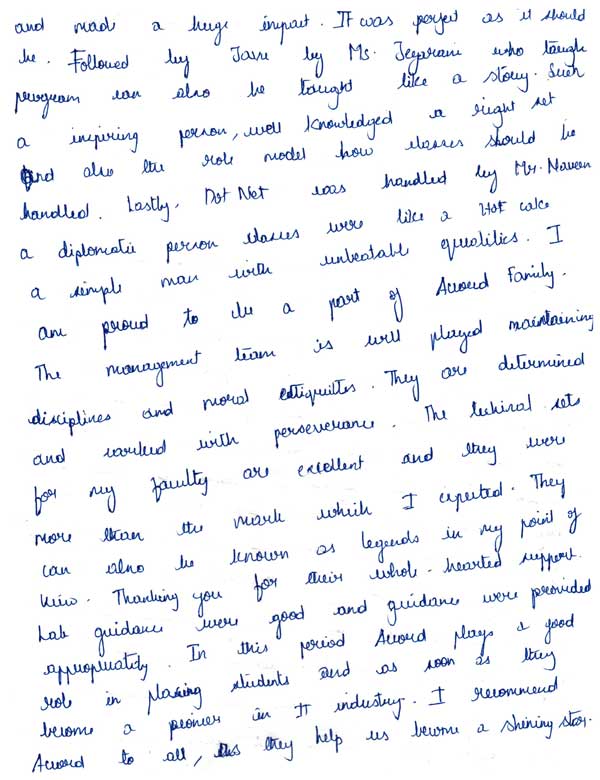 and made a huge impact. It was perfect as it should
be. Followed by Java by Ms. Jeyarani who taugh
program can also be taught like a story. Such
a inspiring person, well knowledged a right set
and also the role model how classes should be
handled. Lastly, Dot Net was handled by Mr. Naveen
a diplomatic person classes were like a Hot cake
a simple man with unbeatable qualities. I
am proud to be a part of Accord Family.
The management team is well played maintaining
disciplines and moral
and worked with perseverance. The techinal sets
for my faculty are excellent and they were
more than the mark which I expected. They
can also be known as legends in my point of
view. Thanking you for their whole-hearted support.
Lab guidance were good and guidance were provided
appropriately. In this period Accord plays a good
role in placing students and as soon as they
become a pionier in IT industry. I recommend
Accord to all, as they help us become a shining star.